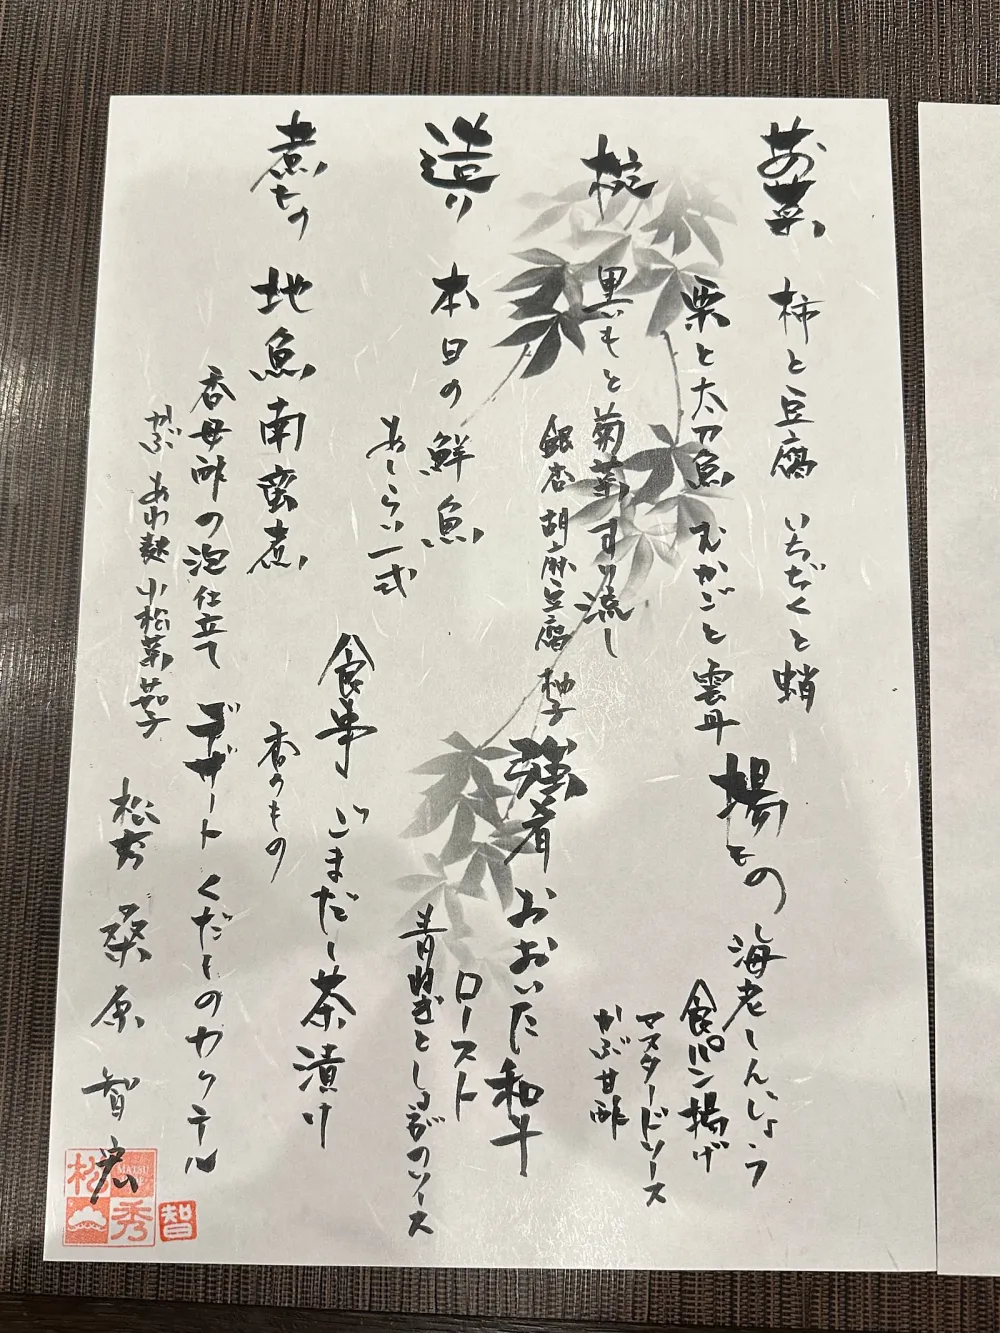 お菜
柿と豆腐 いちぢくと蛸
栗と太刀魚 むかごと雲丹
椀
黒いもと菊菜すり流し
銀杏 胡麻豆腐 柚子
造り
本日の鮮魚
あしらい一式
煮もの
地魚南蛮煮
香母酢の泡仕立て
かぶ あわ麩 小松菜 茄子
揚もの
海老しんじょう
食パン揚げ
マスタードソース
かぶ甘酢
強肴
おおいた和牛
ロースト
青ねぎとしょうがのソース
食事
ごまだし茶漬け
香のもの
デザート
くだものカクテル
松秀 桑原 智宏
松
MATSU
秀
智